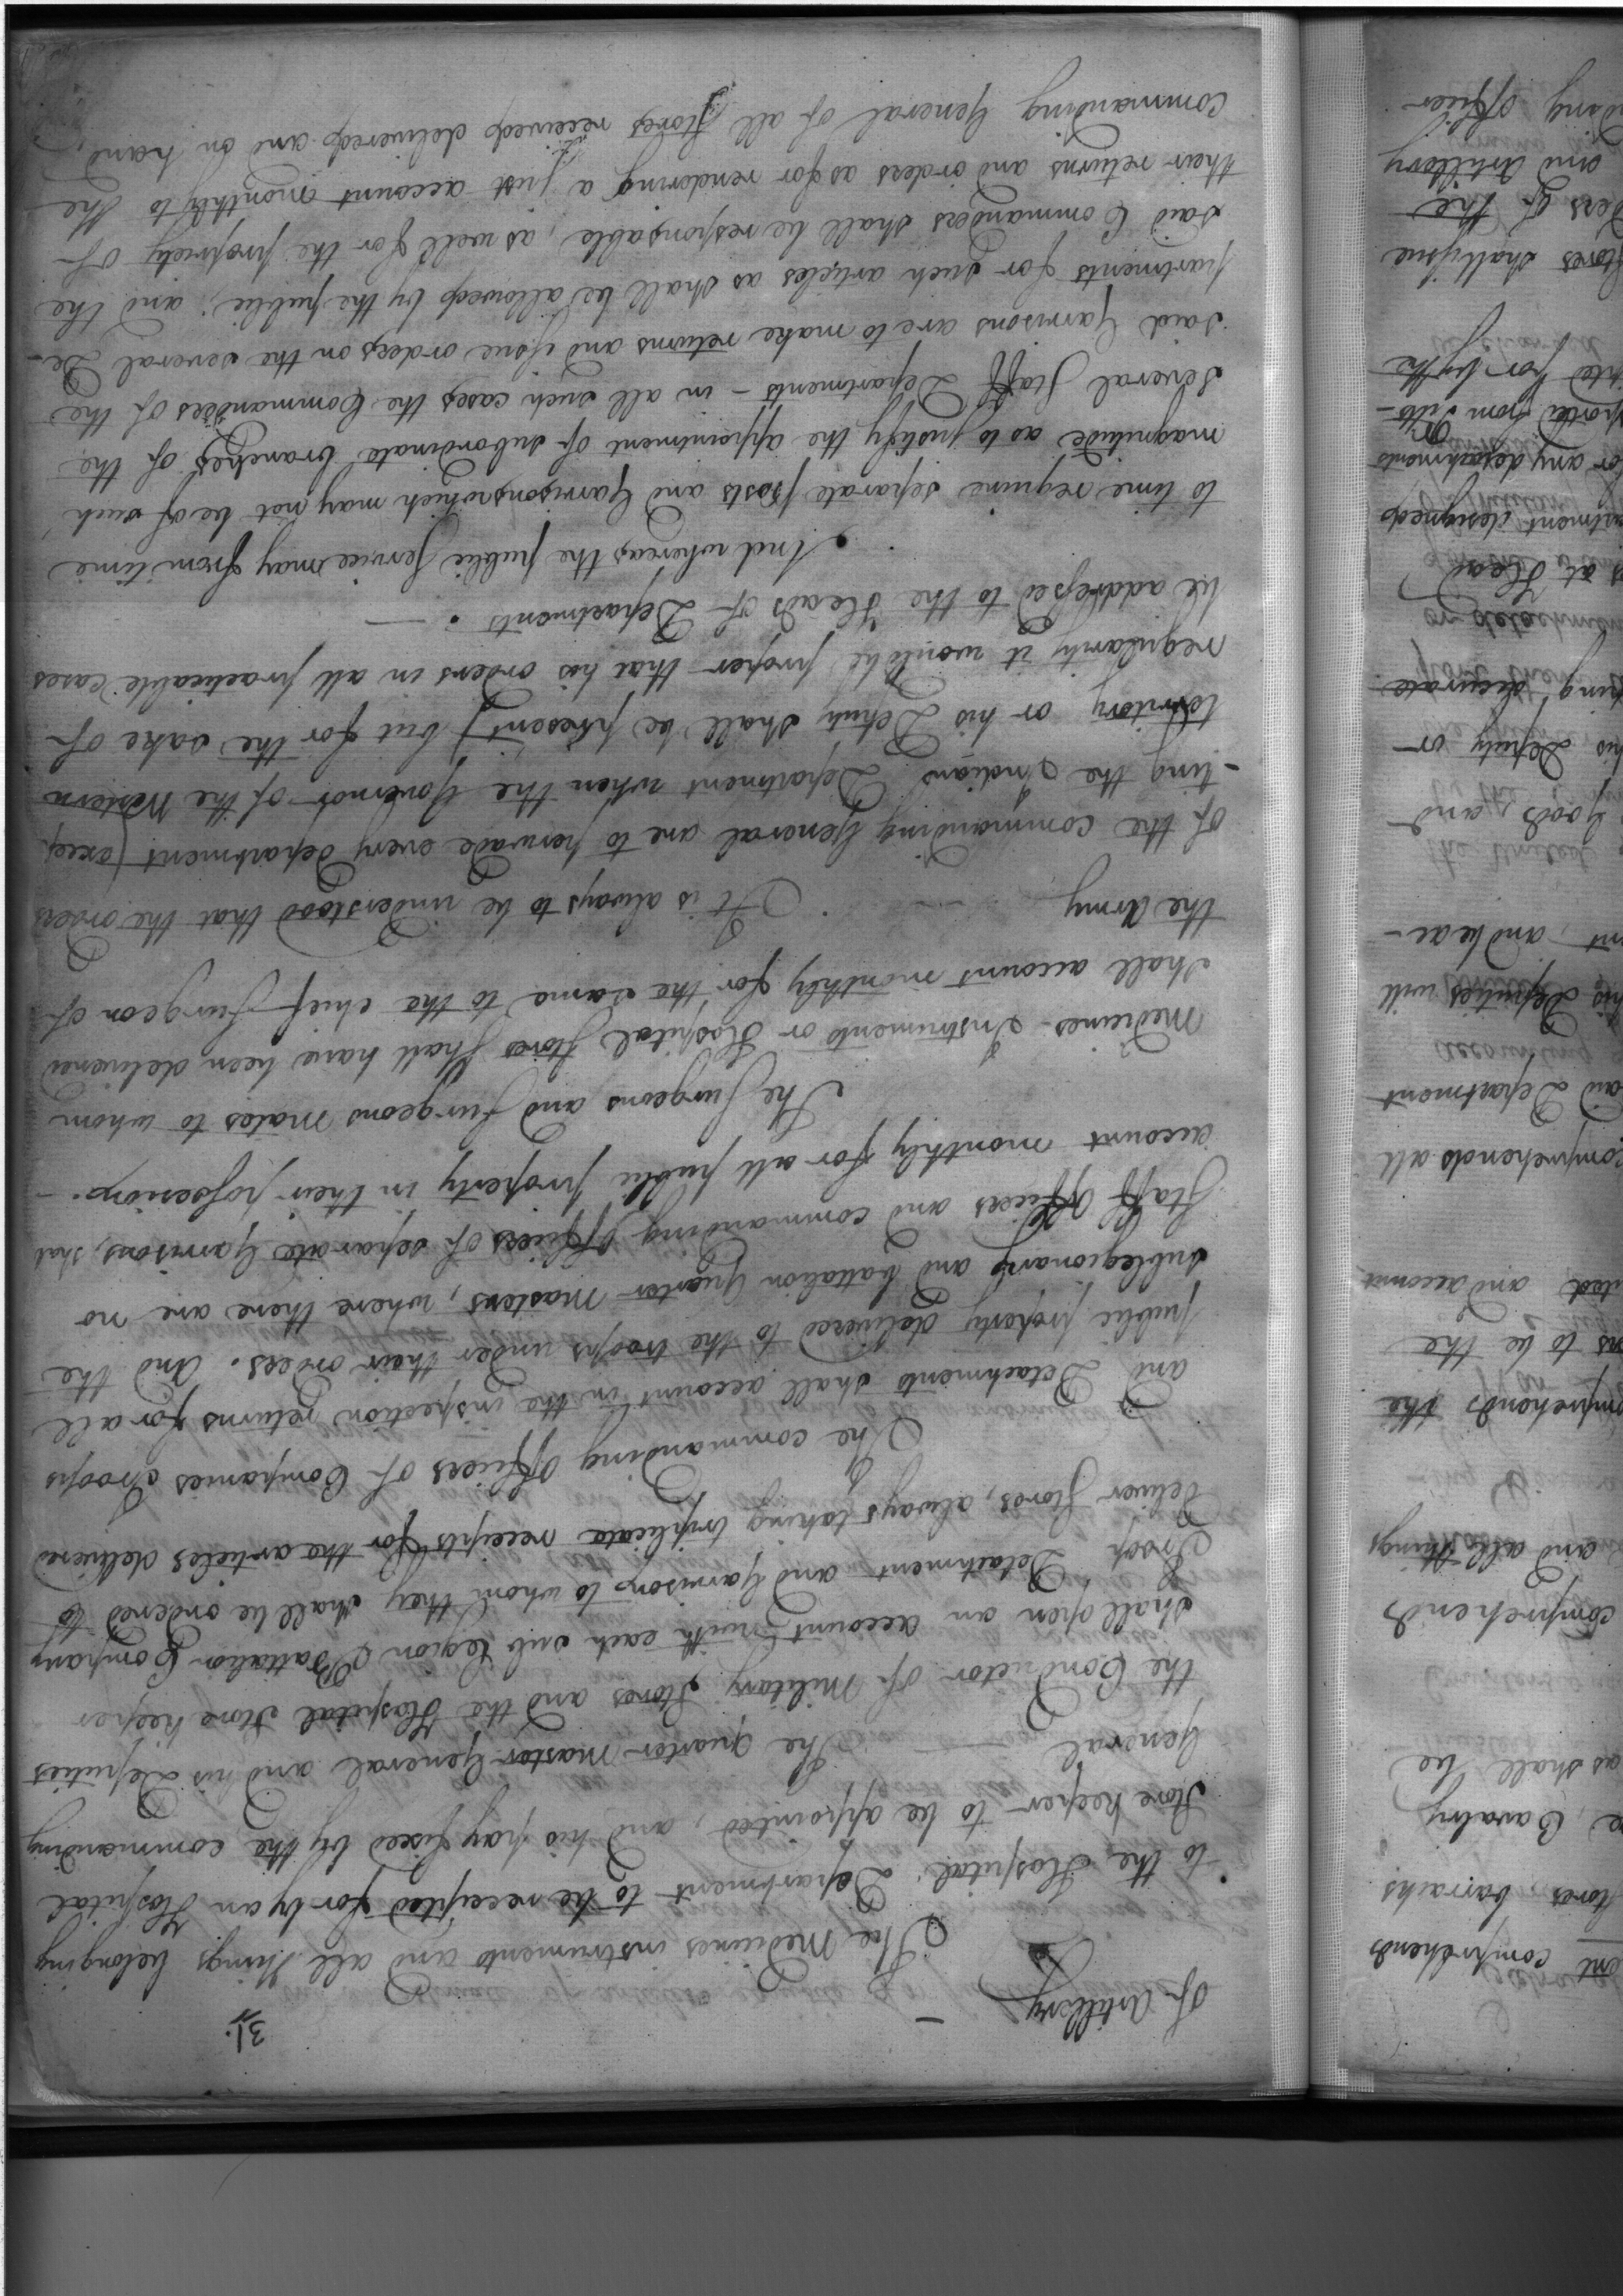 31.
of Artillery —
The Medicines instruments and all things belonging
to the Hospital Department to be receipted for by an Hospital
Store keeper to be appointed, and his pay fixed by the commanding
General —
The Quarter Master General and his Deputies
the Conductor of Military Stores and the Hospital Store keeper
shall open an account with each sub Legion Battalion Company
Troop Detachment and Garrison to whom they shall be ordered to
deliver Stores, always taking triplicate receipts for the articles delivered
The commanding Officers of Companies Troops
and Detachments shall account in the inspection returns for all
public property delivered to the troops under their orders. And the
sublegionary and battalion Quarter Masters, where there are no
Staff Officers and commanding Officers of separate Garrisons, shal
account monthly for all public property in their possession. —
The Surgeons and Surgeons Mates to whom
Medicines - Instruments or Hospital Stores shall have been delivered
shall account monthly for the same to the chief Surgeon of
the Army
It is always to be understood that the orders
of the commanding General are to pervade every department (excep
-ting the Indians Department when the Governor of the Western
territory or his Deputy shall be present) but for the sake of
regularity it would be proper that his orders in all practicable cases
be addressed to the Heads of Departments. —
And whereas the public service may from time
to time require separate posts and Garrisons which may not be of such
magnitude as to justify the appointment of subordinate branches of the
several Staff Departments - in all such cases the Commanders of the
said Garrisons are to make returns and issue orders on the several De-
partments for such articles as shall be allowed by the public; and the
said Commanders shall be responsable, as well for the propriety of
their returns and orders as for rendering a just account monthly to the
Commanding General of all Stores received delivered and on hand,
ent comprehends
tores, barracks
e, Cavalry
as shall be
comprehends
and all things
mprehends the
ns to be the
ted, and account
comprehends all
aid Department
his Deputies will
nt, and be ac-
goods, and
his Deputy or
ing accurate
s at Head
artment designed
or any detachments
ported from Pitts-
ted for by the
Stores shall issue
ders of the
and Artillery
ding officer